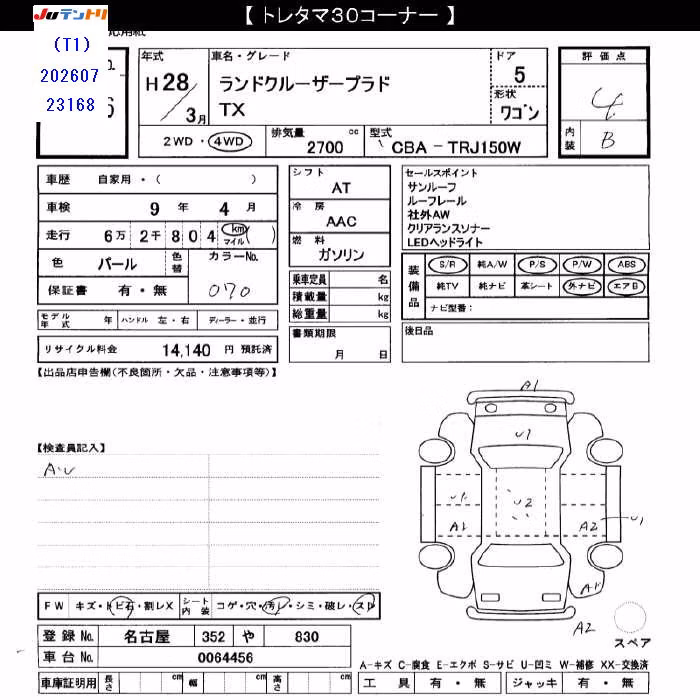 【 トレタマ30コーナー 】
JUテントリ
(T1)
202607
23168
年式
H28/3月
車名・グレード
ランドクルーザープラド
TX
ドア
5
形状
ワゴン
評価点
4
内装
B
2WD・4WD
排気量
2700 cc
型式
CBA - TRJ150W
車歴 自家用・( )
車検 9 年 4 月
走行 6万 2千 8 0 4 km マイル ( )
色 パール 色替 カラーNo.
保証書 有・無 070
モデル年式 年 ハンドル 左・右 ディーラー・並行
リサイクル料金 14,140 円 預託済
シフト
AT
冷房
AAC
燃料
ガソリン
乗車定員 名
積載量 kg
総重量 kg
書類期限
月 日
セールスポイント
サンルーフ
ルーフレール
社外AW
クリアランスソナー
LEDヘッドライト
装備品
S/R 純A/W P/S P/W ABS
純TV 純ナビ 革シート 外ナビ エアB
ナビ型番:
後日品
【出品店申告欄(不良箇所・欠品・注意事項等)】
【検査員記入】
A・U
A1
U1
U1
U2
A1
A2
U1
A1
A2
スペア
FW キズ・トビ石・割レX シート内装 コゲ・穴・汚レ・シミ・破レ・スレ
登録No. 名古屋 352 や 830
車台No. 0064456
車庫証明用 長さ cm 幅 cm 高さ cm
A-キズ C-腐食 E-エクボ S-サビ U-凹ミ W-補修 XX-交換済
工具 有・無 ジャッキ 有・無